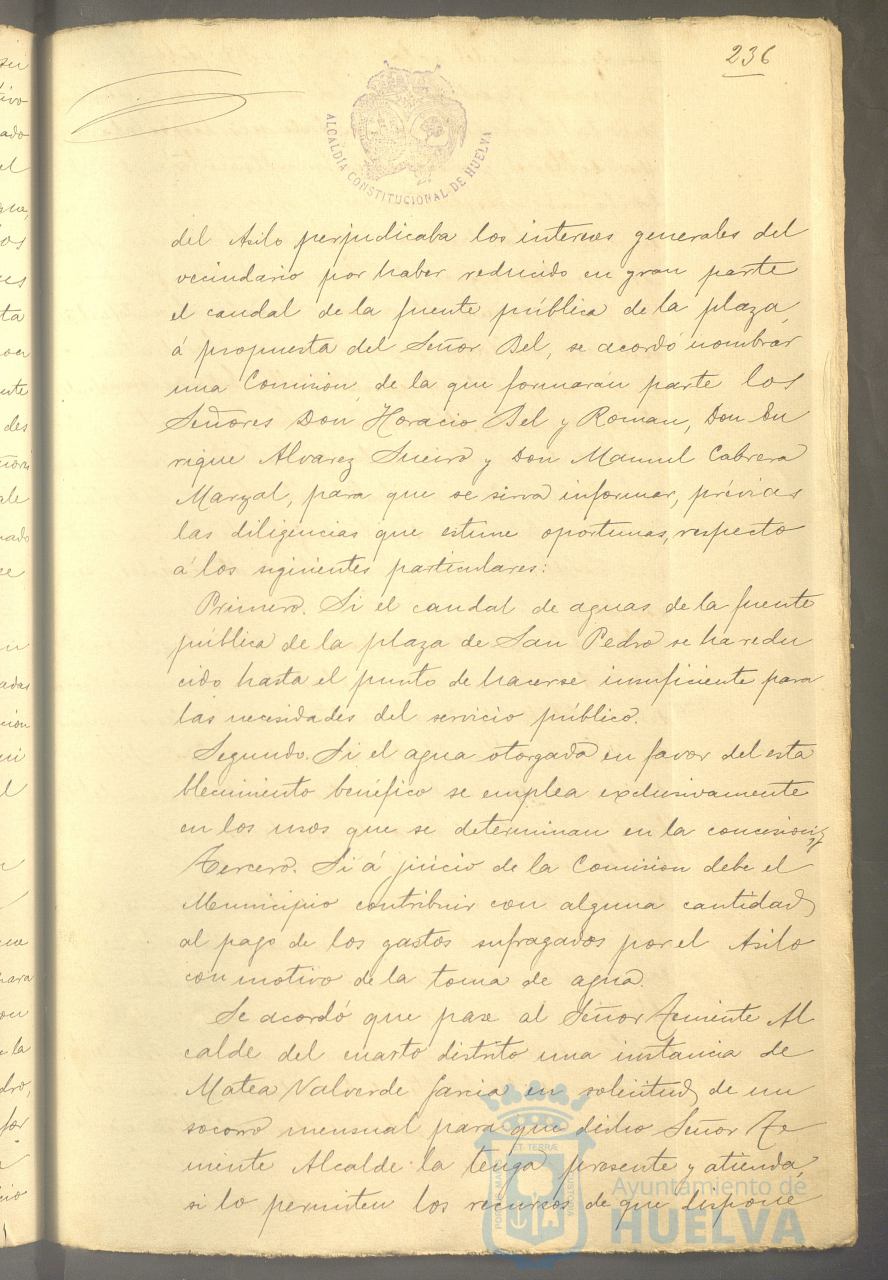 236
ALCALDÍA CONSTITUCIONAL DE HUELVA
del Asilo perjudicaba los intereses generales del
vecindario por haber reducido en gran parte
el caudal de la fuente pública de la plaza,
á propuesta del Señor Bel, se acordó nombrar
una Comisión, de la que formarán parte los
Señores Don Horacio Bel y Roman, Don En
rique Alvarez Sueiro y Don Manuel Cabrera
Marzal, para que se sirva informar, prévias
las diligencias que estime oportunas, respecto
á los siguientes particulares:
Primero. Si el caudal de aguas de la fuente
pública de la plaza de San Pedro se ha redu
cido hasta el punto de hacerse insuficiente para
las necesidades del servicio público.
Segundo. Si el agua otorgada en favor del esta
blecimiento benéfico se emplea exclusivamente
en los usos que se determinan en la concesion; y
Tercero. Si á juicio de la Comision debe el
Municipio contribuir con alguna cantidad
al pago de los gastos sufragados por el Asilo
con motivo de la toma de agua.
Se acordó que pase al Señor Teniente Al
calde del cuarto distrito una instancia de
Matea Valverde Garcia en solicitud de un
socorro mensual para que dicho Señor Te
niente Alcalde la tenga presente y atienda,
si lo permiten los recursos de que dispone
Ayuntamiento de
HUELVA